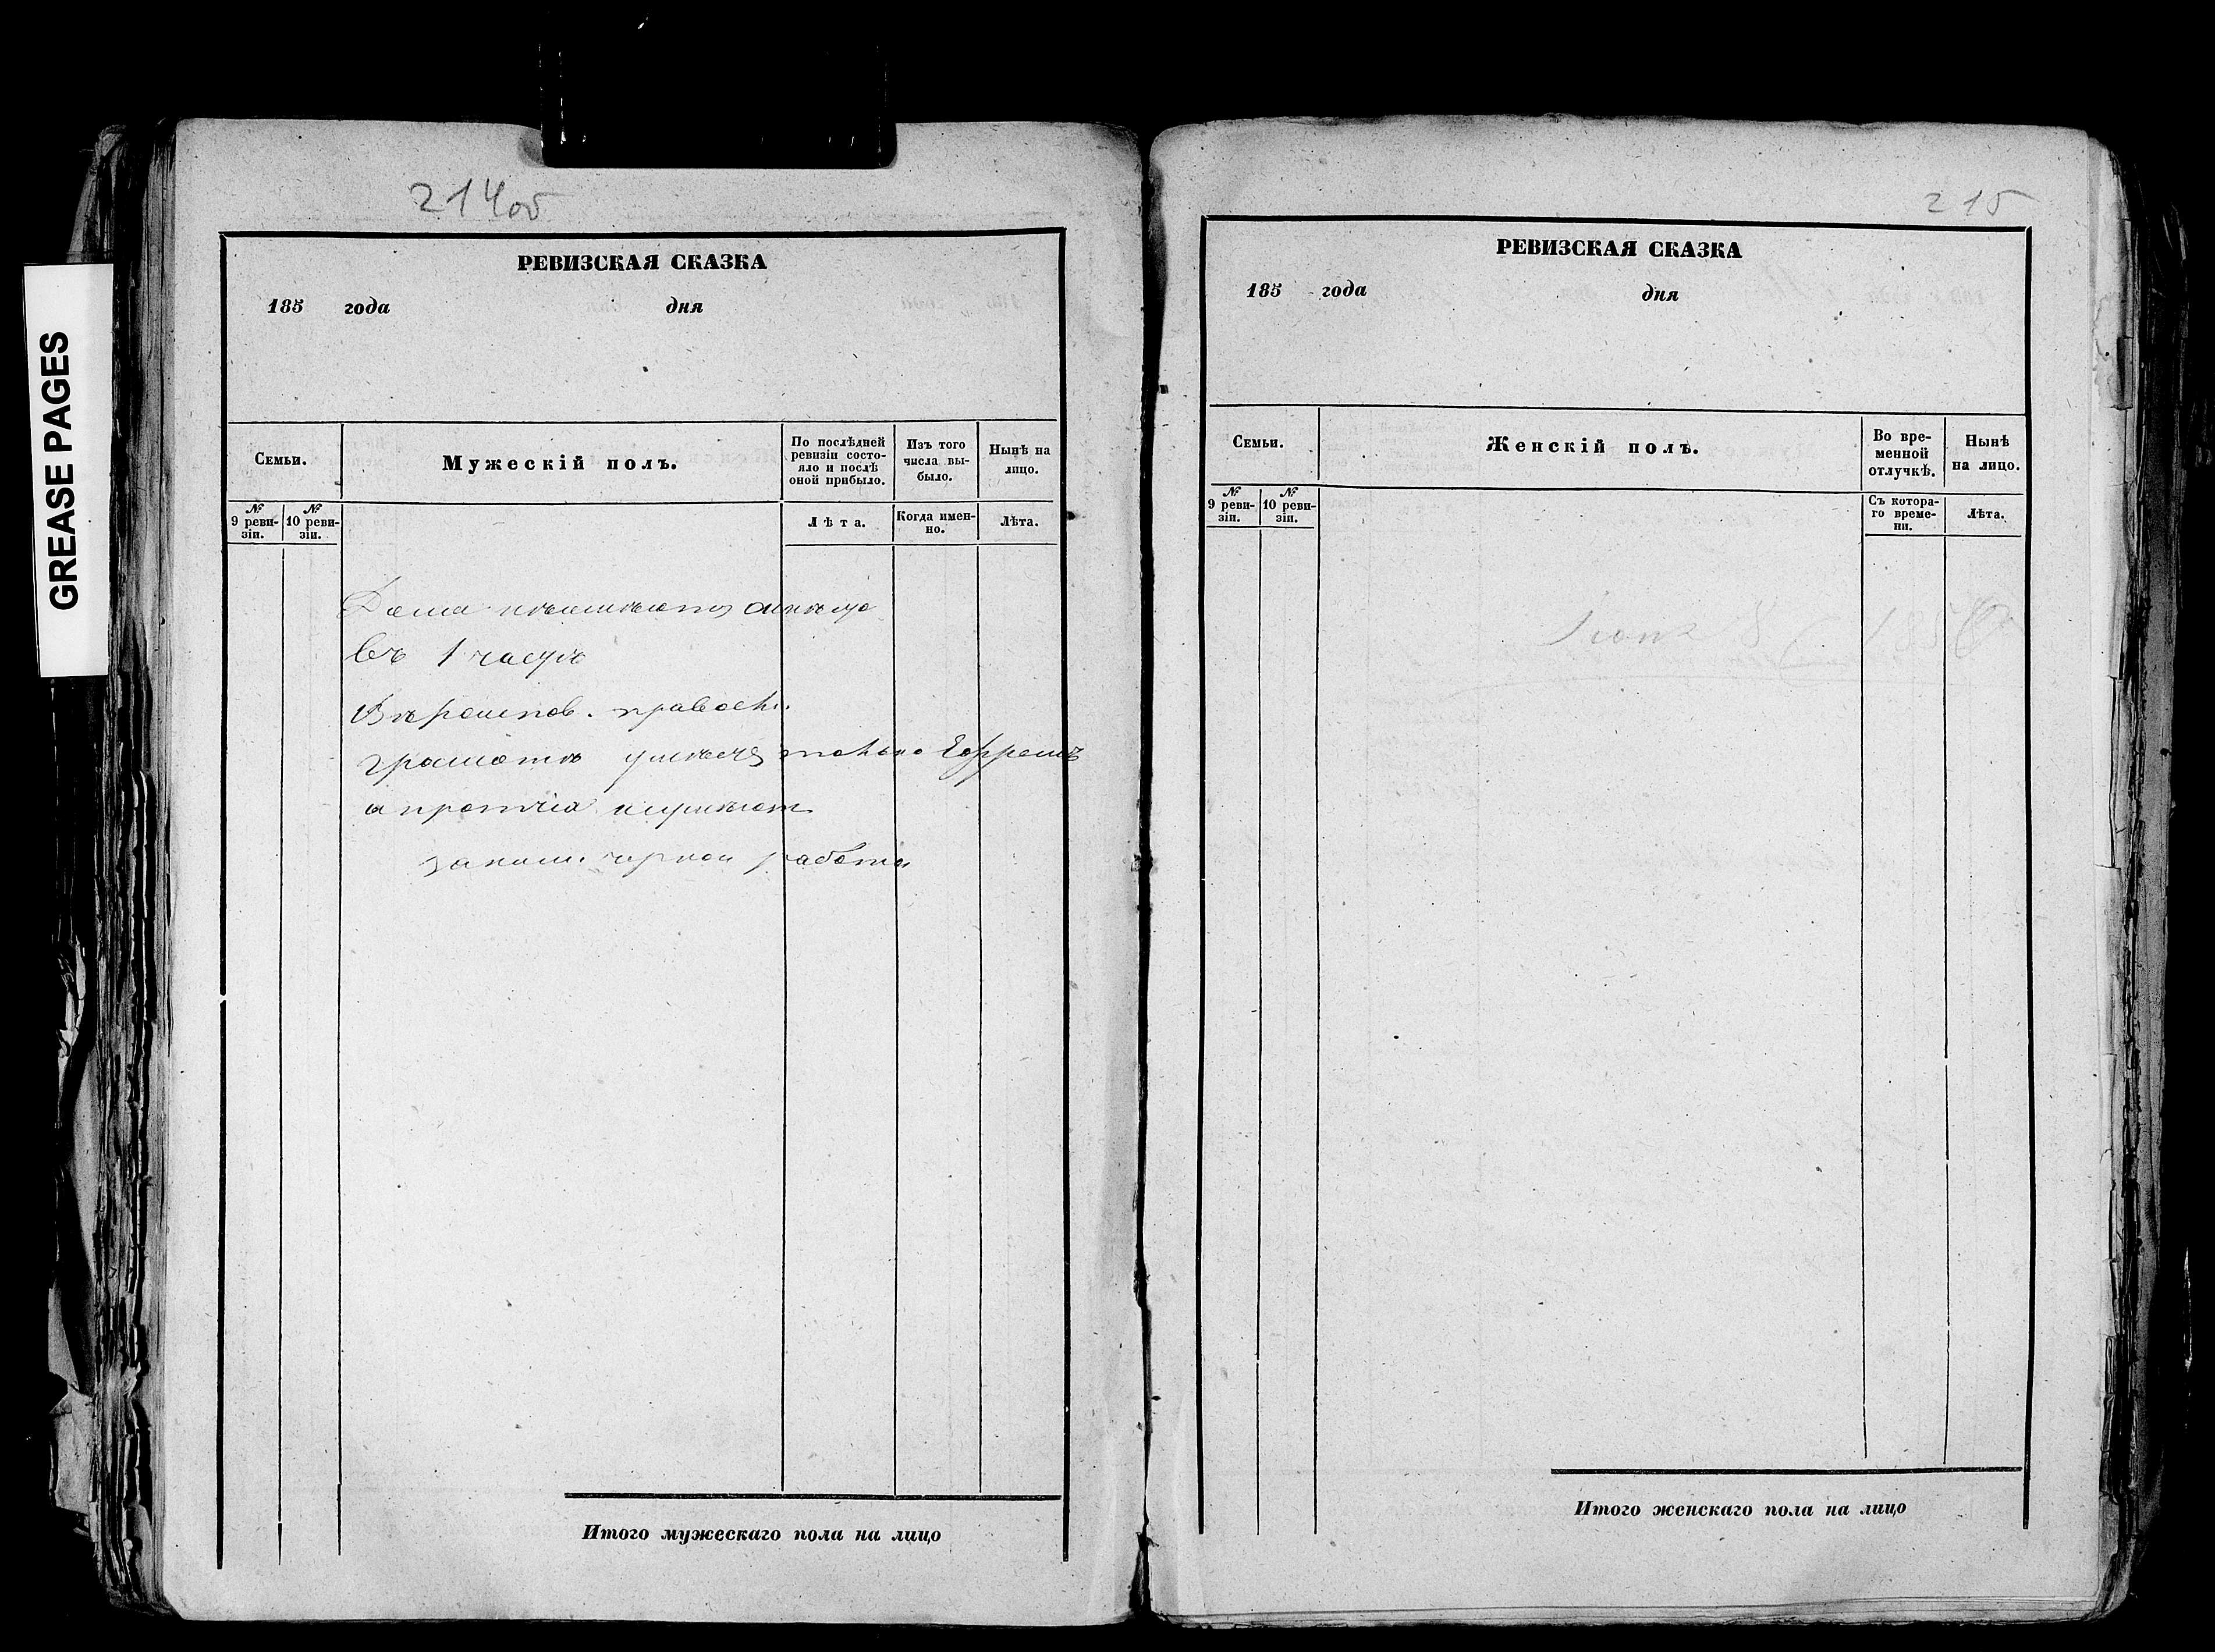 GREASE PAGES
214об
РЕВИЗСКАЯ СКАЗКА
185 года дня
Семьи.
Мужескій полъ.
По послѣдней ревизіи состояло и послѣ оной прибыло.
Изъ того числа выбыло.
Нынѣ на лицо.
№ 9 ревизіи.
№ 10 ревизіи.
Лѣта.
Когда именно.
Лѣта.
Дома
въ 1 часть
Вѣроиспов. правосл.
грамотѣ умѣетъ только Ефремъ
а протчіа
заним. черной работой
Итого мужескаго пола на лицо
215
РЕВИЗСКАЯ СКАЗКА
185 года дня
Семьи.
Женскій полъ.
Во временной отлучкѣ.
Нынѣ на лицо.
№ 9 ревизіи.
№ 10 ревизіи.
Съ котораго времени.
Лѣта.
Итого женскаго пола на лицо